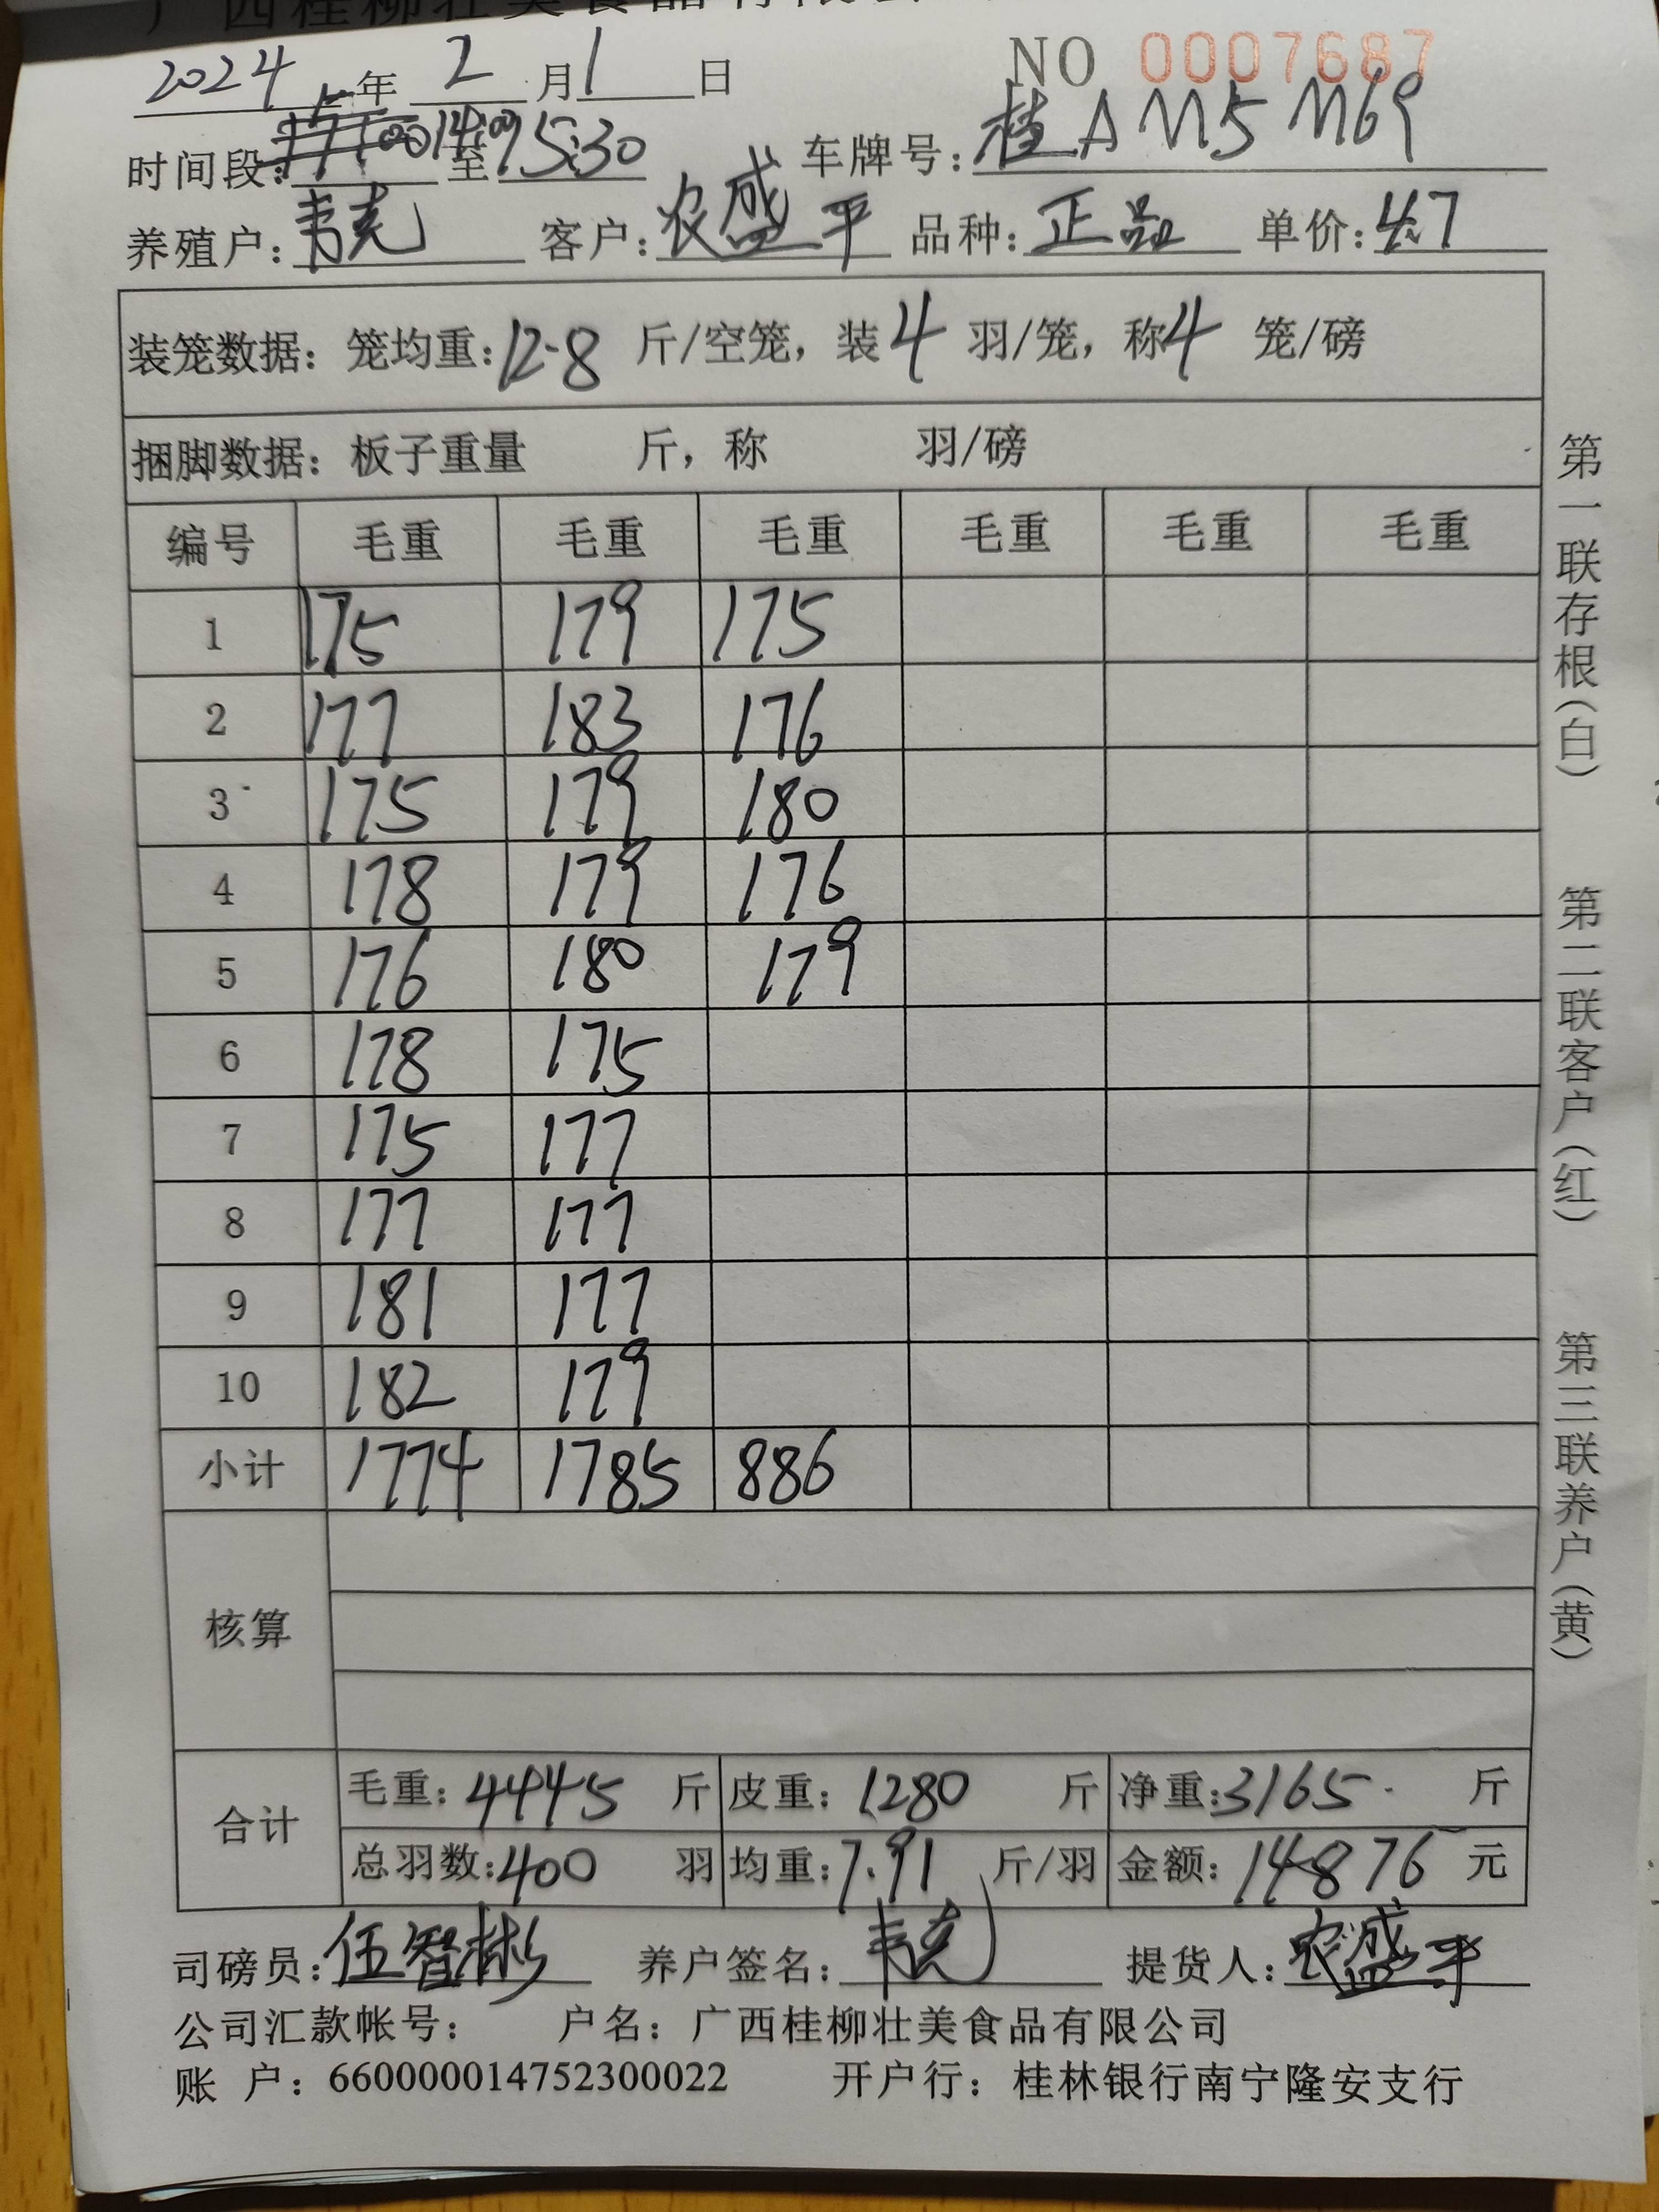 广西桂柳壮美食品有限公司
NO 0007687
2024年 2月1日
时间段: 14:00至15:30 车牌号: 桂A M5M69
养殖户: 韦克 客户: 农盛平 品种: 正品 单价: 4.7
装笼数据: 笼均重: 12.8 斤/空笼, 装4 羽/笼, 称4 笼/磅
捆脚数据: 板子重量 斤, 称 羽/磅
编号 毛重 毛重 毛重 毛重 毛重 毛重
1 175 179 175
2 177 183 176
3 175 179 180
4 178 179 176
5 176 180 179
6 178 175
7 175 177
8 177 177
9 181 177
10 182 179
小计 1774 1785 886
核算
合计 毛重: 4445 斤 皮重: 1280 斤 净重: 3165 斤
总羽数: 400 羽 均重: 7.91 斤/羽 金额: 14876 元
司磅员: 伍智彬 养户签名: 韦克 提货人: 农盛平
公司汇款帐号: 户名: 广西桂柳壮美食品有限公司
账 户: 660000014752300022 开户行: 桂林银行南宁隆安支行
第一联存根(白) 第二联客户(红) 第三联养户(黄)